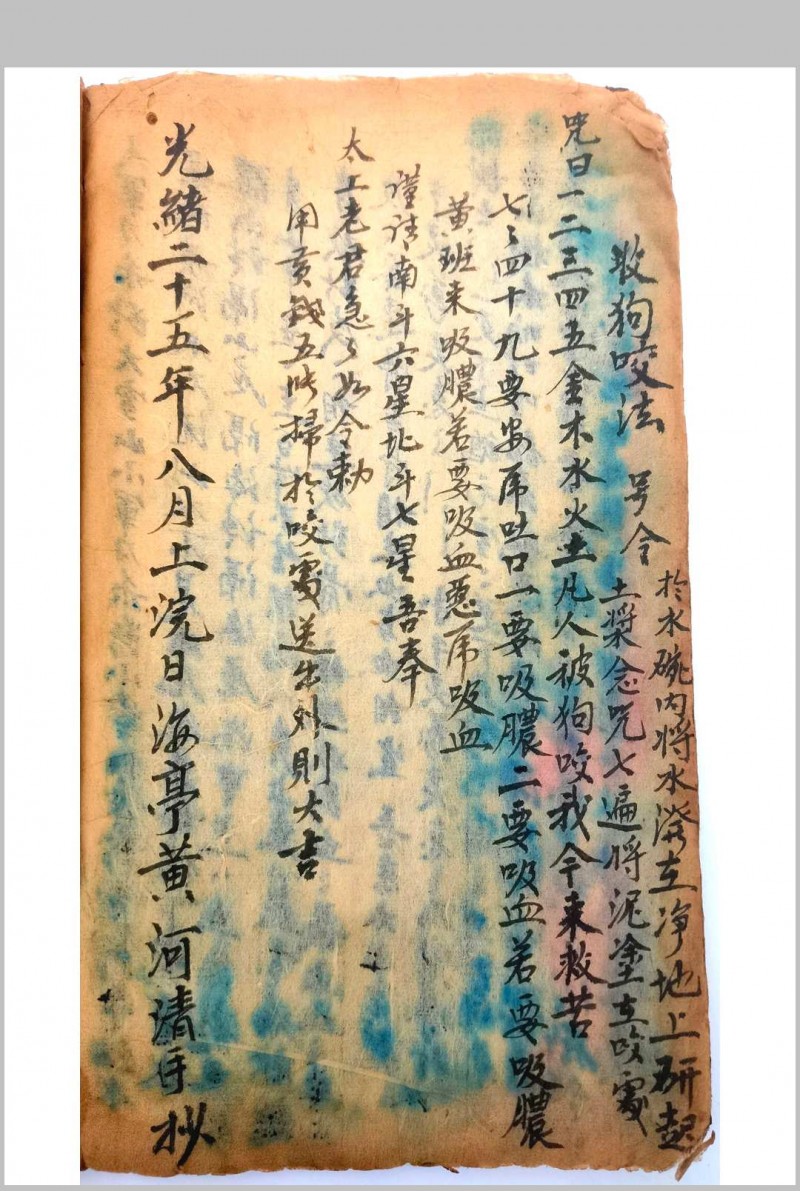 收狗咬法 号令
於水碗内将水潑在净地上研起
土漿念咒七遍将泥塗在咬處
咒曰一二三四五金木水火土凡人被狗咬我今来救苦
七々四十九要安吊吐口一要吸膿二要吸血若要吸膿
黄班来吸膿若要吸血惡吊吸血
谨请南斗六星北斗七星吾奉
太上老君急々如令勅
用黄錢五帋掃於咬處送出外則大吉
光緒二十五年八月上浣日海亭黄河清手抄